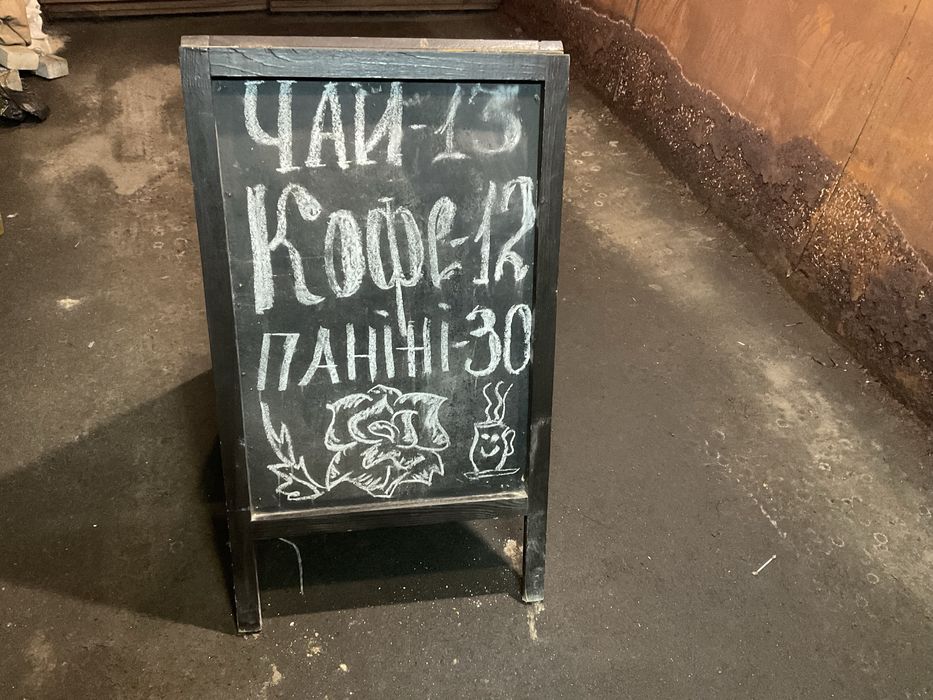 ЧАЙ-13
Кофе-12
ПАНІНІ-30